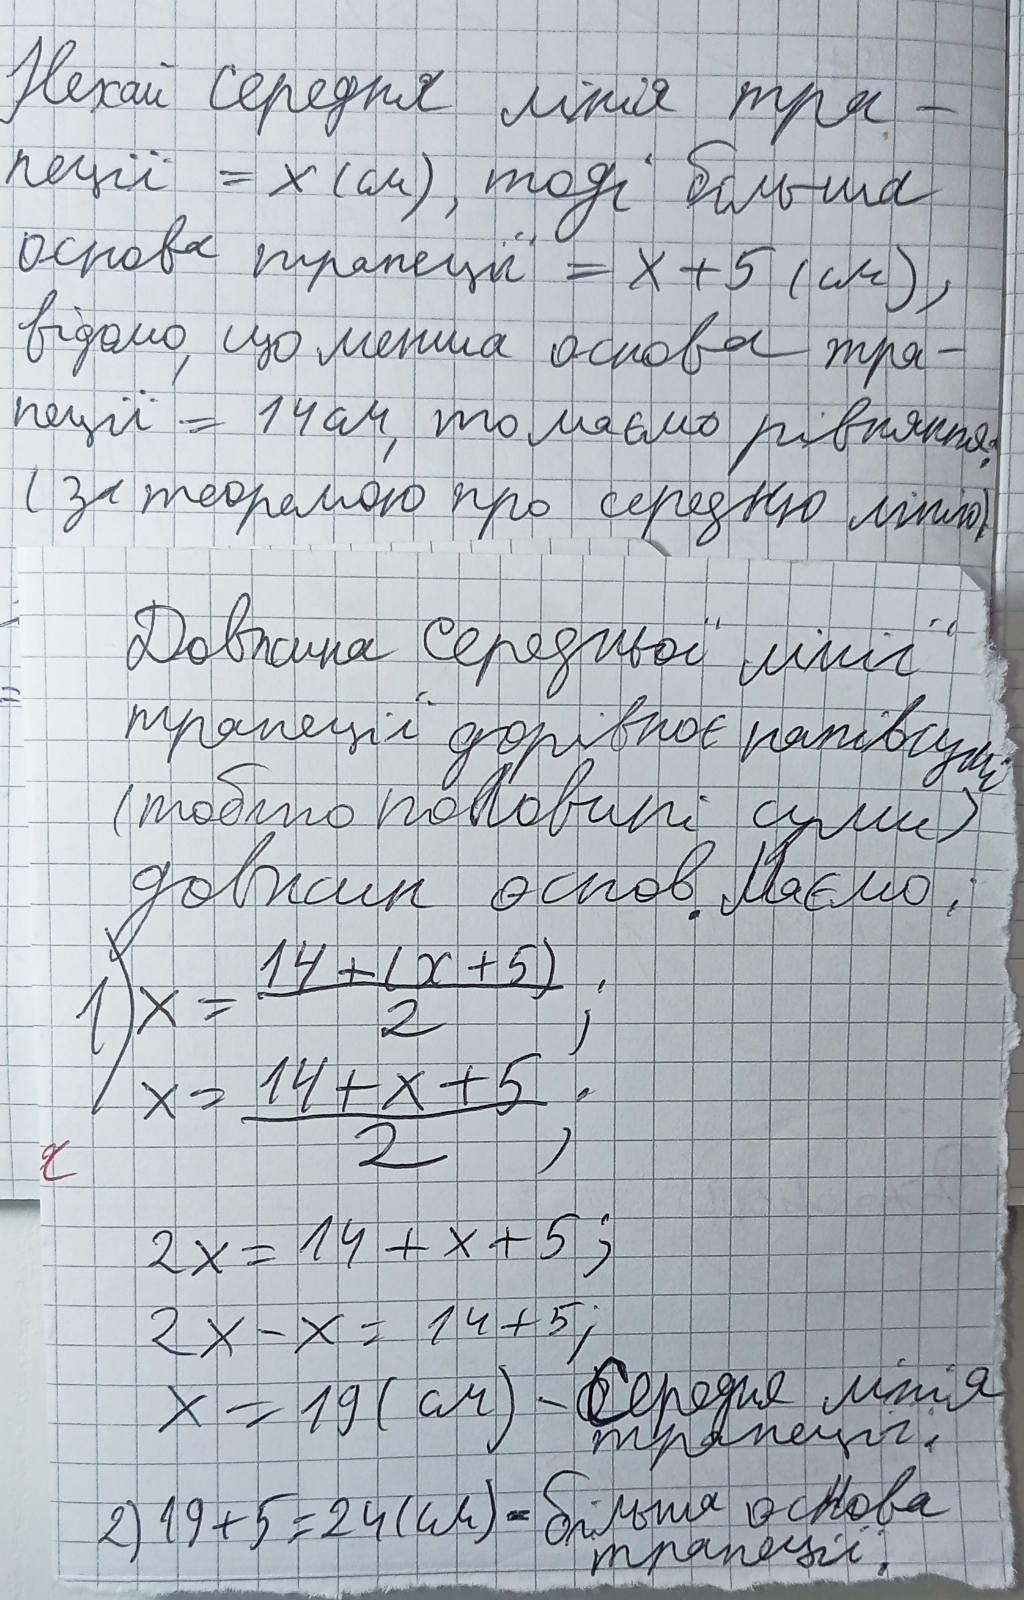 Нехай середня лінія тра-
пеції = x (см), тоді більша
основа трапеції = x + 5 (см),
відомо, що менша основа тра-
пеції = 14 см, то маємо рівняння:
(за теоремою про середню лінію)
Довжина середньої лінії
трапеції дорівнює напівсумі
(тобто половині суми)
довжин основ. Маємо:
1) x = \frac{14 + (x + 5)}{2};
x = \frac{14 + x + 5}{2};
2x = 14 + x + 5;
2x - x = 14 + 5;
x = 19 (см) - Середня лінія
трапеції.
2) 19 + 5 = 24 (см) - більша основа
трапеції.